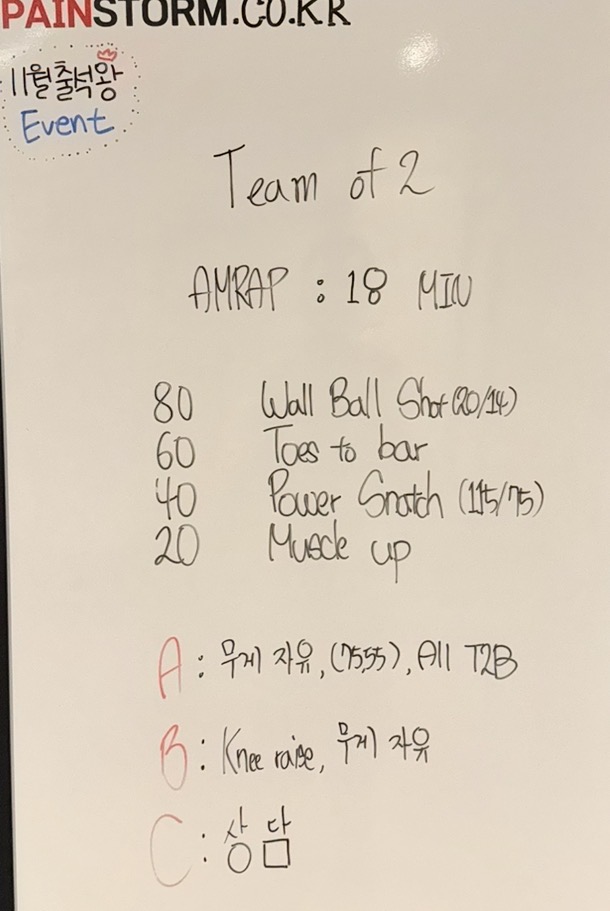 PAINSTORM.CO.KR
11월출석왕
Event
Team of 2
AMRAP : 18 MIN
80 Wall Ball Shot (20/14)
60 Toes to bar
40 Power Snatch (115/75)
20 Muscle up
A : 무게 자유, (75,55), All T2B
B : Knee raise, 무게 자유
C : 상담